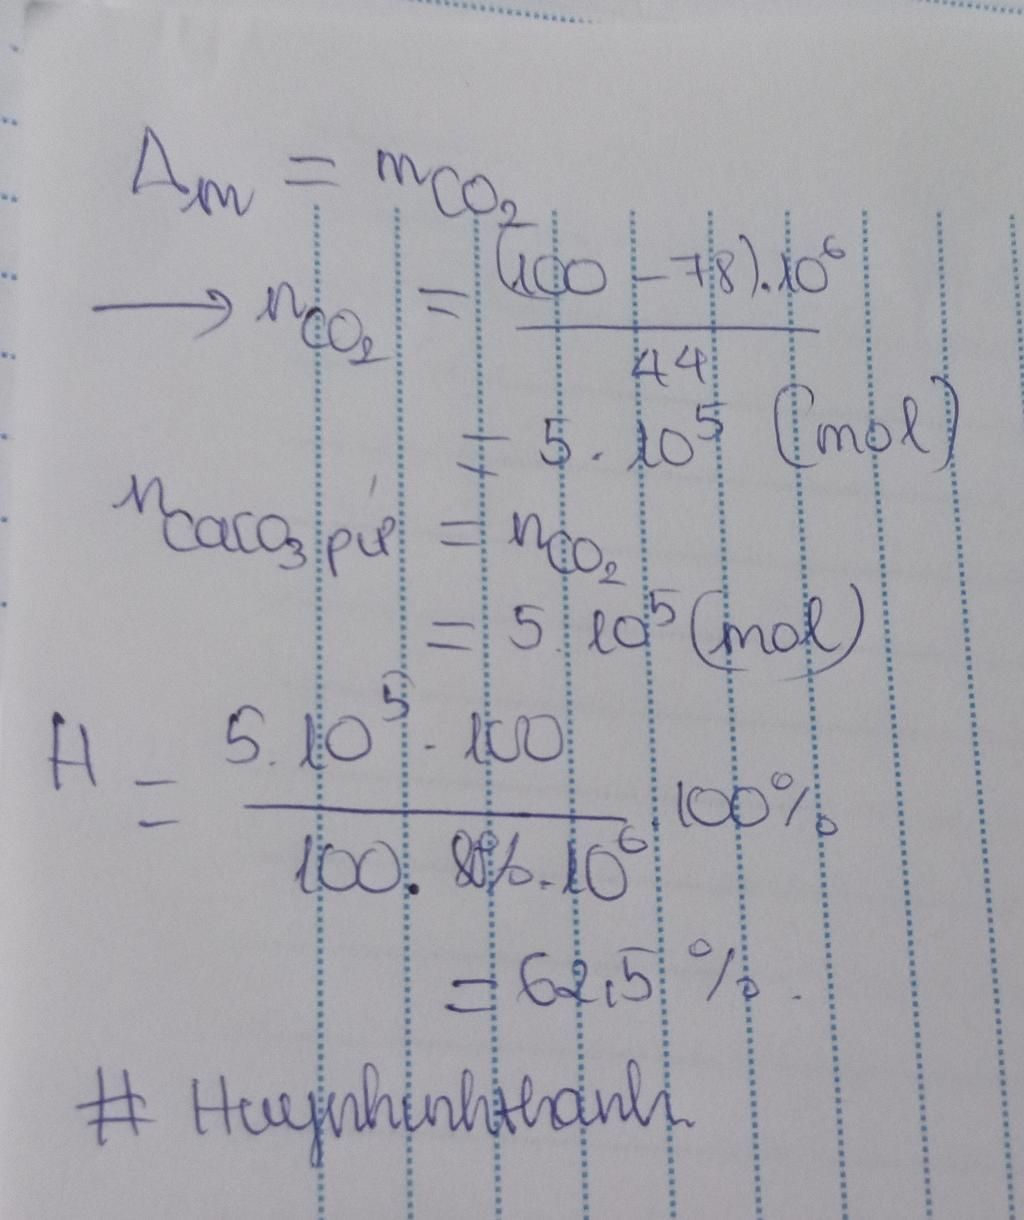 Δm = mCO₂
→ nCO₂ = (100 - 78).10⁶ / 44
= 5.10⁵ (mol)
nCaCO₃ pứ = nCO₂
= 5.10⁵ (mol)
H = 5.10⁵.100 / 100.80%.10⁶ .100%
= 62,5 %.
# Huynhvinhthanh